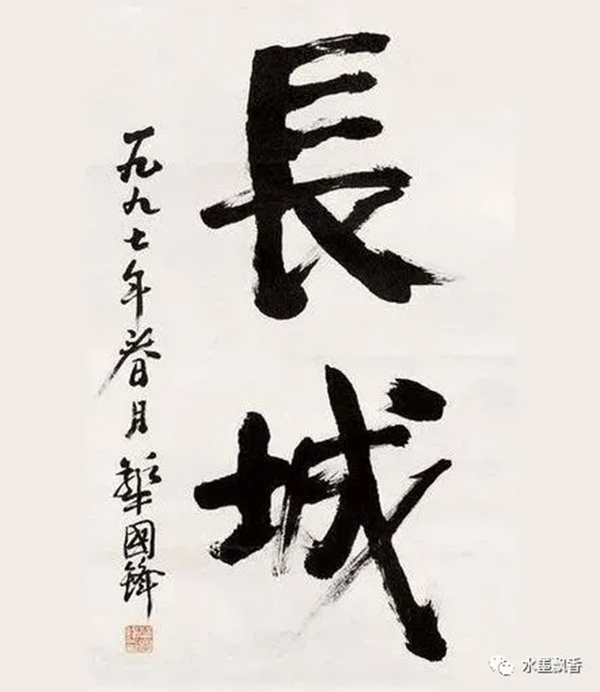 長城
一九九七年春月華國鋒
水墨飘香